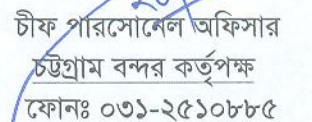 চীফ পারসোনেল অফিসার
চট্টগ্রাম বন্দর কর্তৃপক্ষ
ফোনঃ ০৩১-২৫১০৮৮৫